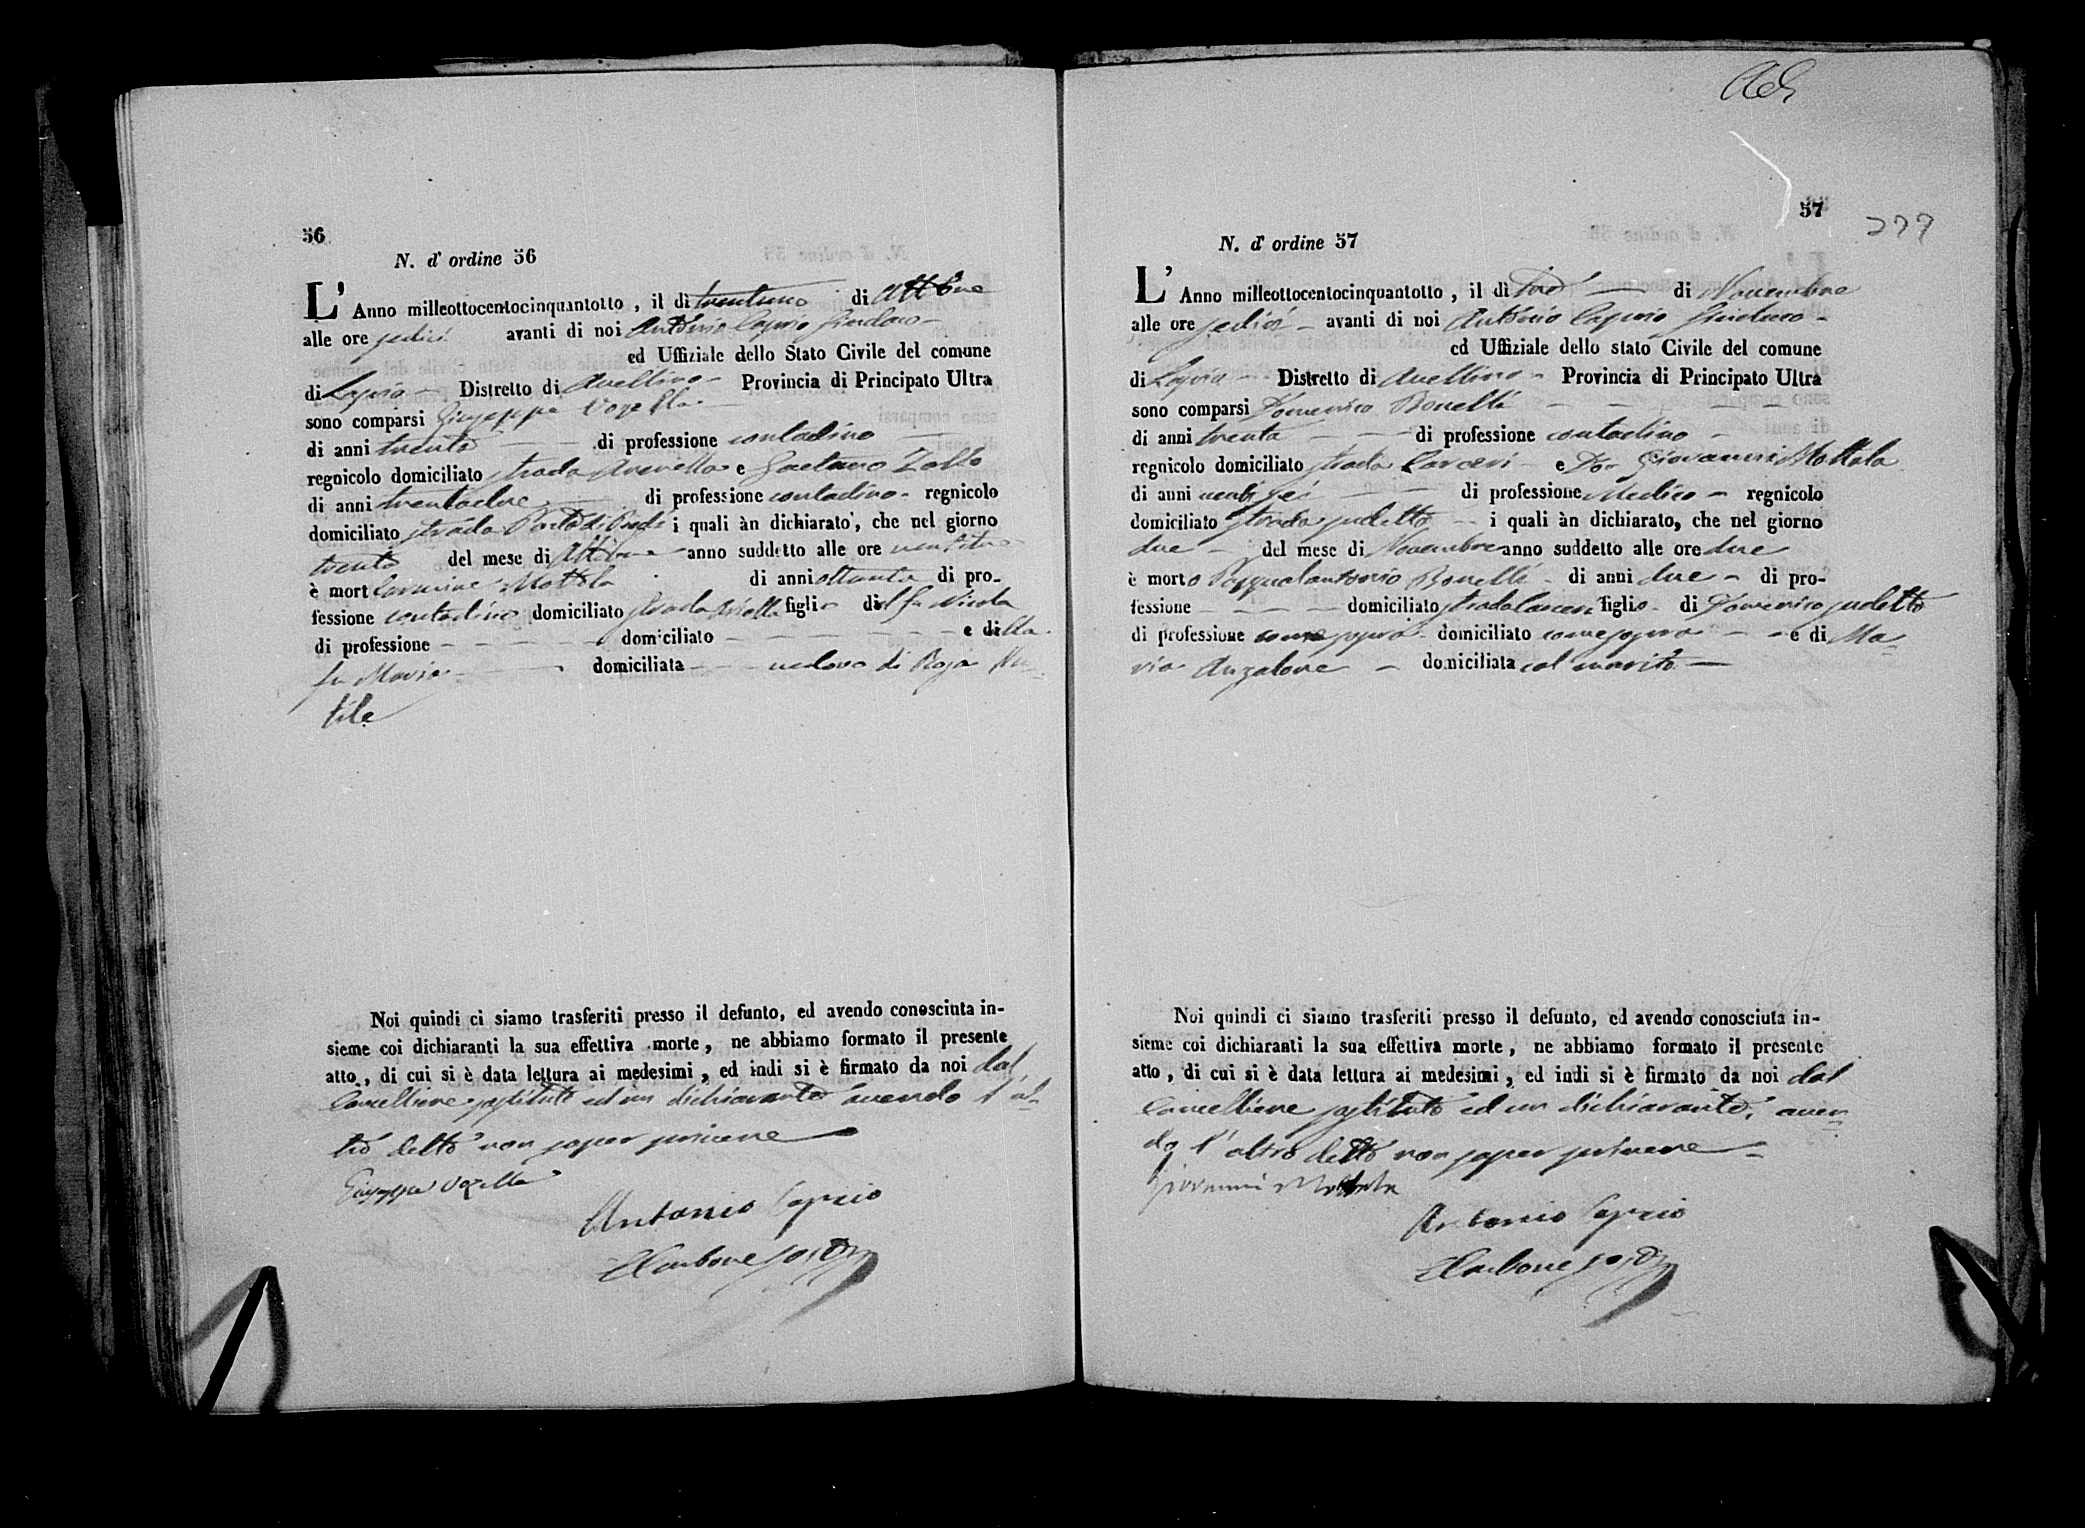 56
N. d' ordine 56
L' Anno milleottocentocinquantotto, il dì trentuno di Ottobre
alle ore sedici avanti di noi Antonio Caprio Sindaco
ed Uffiziale dello Stato Civile del comune
di Lapio Distretto di Avellino Provincia di Principato Ultra
sono comparsi Giuseppe Vozella
di anni trenta di professione contadino
regnicolo domiciliato strada e Gaetano Zollo
di anni trentadue di professione contadino regnicolo
domiciliato strada i quali àn dichiarato, che nel giorno
trenta del mese di Ottobre anno suddetto alle ore
è mort Carmine Mottola di anni ottanta di pro-
fessione contadino domiciliato strada figlio del fu Nicola
di professione domiciliato e di lla
fu Maria domiciliata vedovo di Rosa
tile
Noi quindi ci siamo trasferiti presso il defunto, ed avendo conosciuta in-
sieme coi dichiaranti la sua effettiva morte, ne abbiamo formato il presente
atto, di cui si è data lettura ai medesimi, ed indi si è firmato da noi dal
Cancelliere sostituto ed un dichiarante avendo l'al-
tro detto non saper scrivere
Giuseppe Vozella
Antonio Caprio
Carbone
57
277
N. d' ordine 57
L' Anno milleottocentocinquantotto, il dì tre di Novembre
alle ore sedici avanti di noi Antonio Caprio Sindaco
ed Uffiziale dello stato Civile del comune
di Lapio Distretto di Avellino Provincia di Principato Ultra
sono comparsi Domenico Bonelli
di anni trenta di professione contadino
regnicolo domiciliato strada Carceri e Don Giovanni Mottola
di anni ventisei di professione Medico regnicolo
domiciliato strada sudetta i quali àn dichiarato, che nel giorno
due del mese di Novembre anno suddetto alle ore due
è morto Pasqualantonio Bonelli di anni due di pro-
fessione domiciliato strada Carceri figlio di Domenico sudetto
di professione come sopra domiciliato come sopra e di Ma-
ria Anzalone domiciliata col marito
Noi quindi ci siamo trasferiti presso il defunto, ed avendo conosciuta in-
sieme coi dichiaranti la sua effettiva morte, ne abbiamo formato il presente
atto, di cui si è data lettura ai medesimi, ed indi si è firmato da noi dal
Cancelliere sostituto ed un dichiarante, aven-
do l'altro detto non saper scrivere
Giovanni Mottola
Antonio Caprio
Carbone